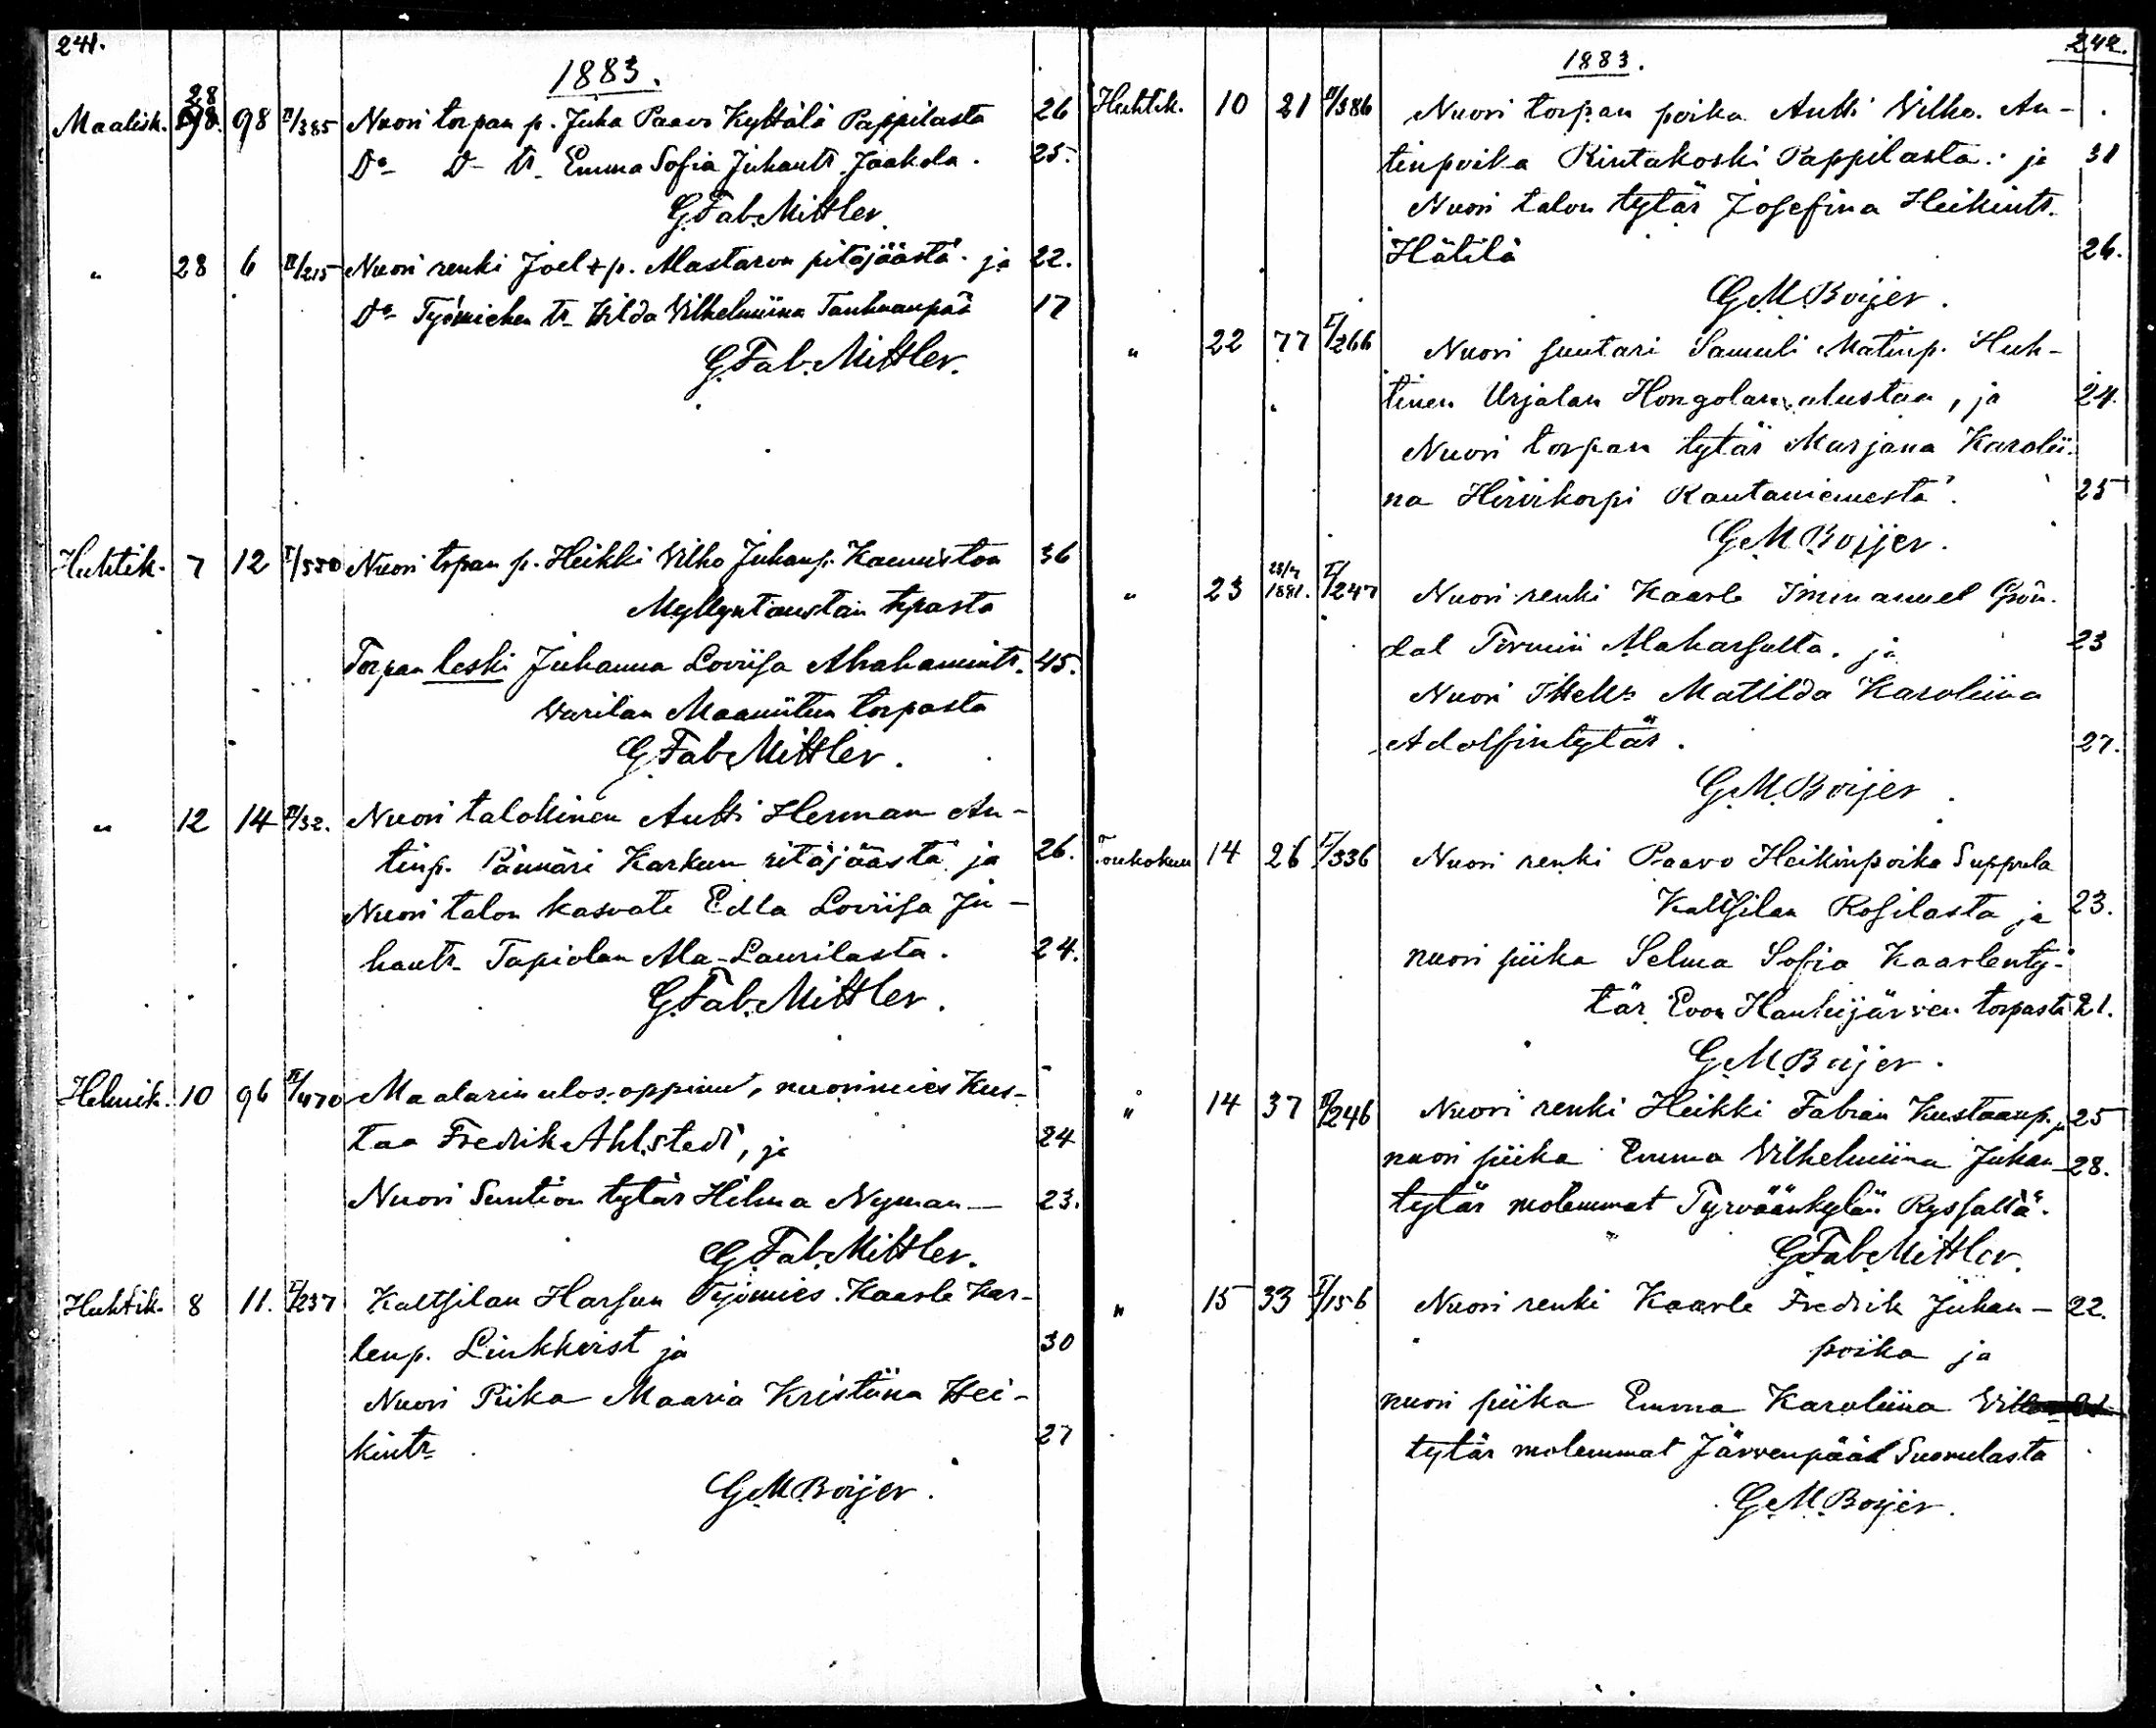 241.
1883.
28
Maalisk. 98 II/385 Nuori torpan p. Juha Paavo Kyttälä Pappilasta 26
Do D- tr. Emma Sofia Juhantr. Jaakola. 25.
G. Fab. Mittler.
" 28 6 II/215 Nuori renki Joel p. Mastaron pitäjäästä ja 22.
Do Työmiehen tr. Hilda Vilhelmiina Tanhuanpää 17
G. Fab. Mittler.
Huhtik. 7 12 I/550 Nuori torpan p. Heikki Vilho Juhanp. Kaunistoa 36
Myllyntaustan tpasta
Torpan leski Juhanna Loviisa Abrahamintr. 45.
Varilan Maaniitun torpasta
G. Fab. Mittler.
" 12 14 II/32. Nuori talollinen Antti Herman An-
tinp. Pännäri Karkun pitäjäästä ja 26.
Nuori talon kasvate Edla Loviisa Ju-
hantr. Tapiolan Ala-Laurilasta. 24.
G. Fab. Mittler.
Helmik. 10 96 II/470 Maalarin ulos-oppinut, nuorimies Kus-
taa Fredrik Ahlstedt, ja 24
Nuori Suntion tytär Hilma Nyman — 23.
G. Fab. Mittler.
Huhtik. 8 11. I/237 Kaltsilan Harsun Työmies Kaarle Kar-
lenp. Linkkvist ja 30
Nuori Piika Maaria Kristiina Hei-
kintr. 27
G. M. Boijer.
242.
1883.
Huhtik. 10 21 II/386 Nuori torpan poika Antti Vilho. An-
tinpoika Rintakoski Pappilasta. ja 31
Nuori talon tytär Josefina Heikintr.
Hätilä 26.
G. M. Boijer.
" 22 77 I/266 Nuori suutari Samuli Matinp. Huh-
tinen Urjalan Hongolan alustaa, ja 24.
Nuori torpan tytär Marjana Karolii-
na Hirvikorpi Rautaniemestä. 25
G. M. Boijer.
" 23 23/4 1881. I/247 Nuori renki Kaarle Immanuel Grön-
dal Tirmun Alaharsulta. ja 23
Nuori Itsells Matilda Karoliina
Adolfintytär. 27.
G. M. Boijer.
Toukokuu 14 26 I/336 Nuori renki Paavo Heikinpoika Suppula
Kaltsilan Rosilasta ja 23.
nuori piika Selma Sofia Kaarlenty-
tär Evon Hanhijärven torpasta 21.
G. M. Boijer.
" 14 37 II/246 Nuori renki Heikki Fabian Kustaanp. ja 25
nuori piika Emma Vilhelmiina Juhan- 28.
tytär molemmat Tyrväänkylän Ryssältä.
G. Fab. Mittler.
" 15 33 I/156 Nuori renki Kaarle Fredrik Juhan- 22.
poika ja
nuori piika Emma Karoliina
tytär molemmat Järvenpään Suomulasta
G. M. Boijer.